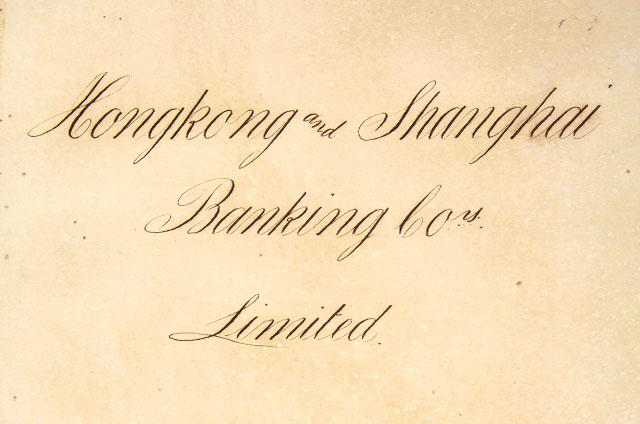 Hongkong and Shanghai
Banking Coy.
Limited.